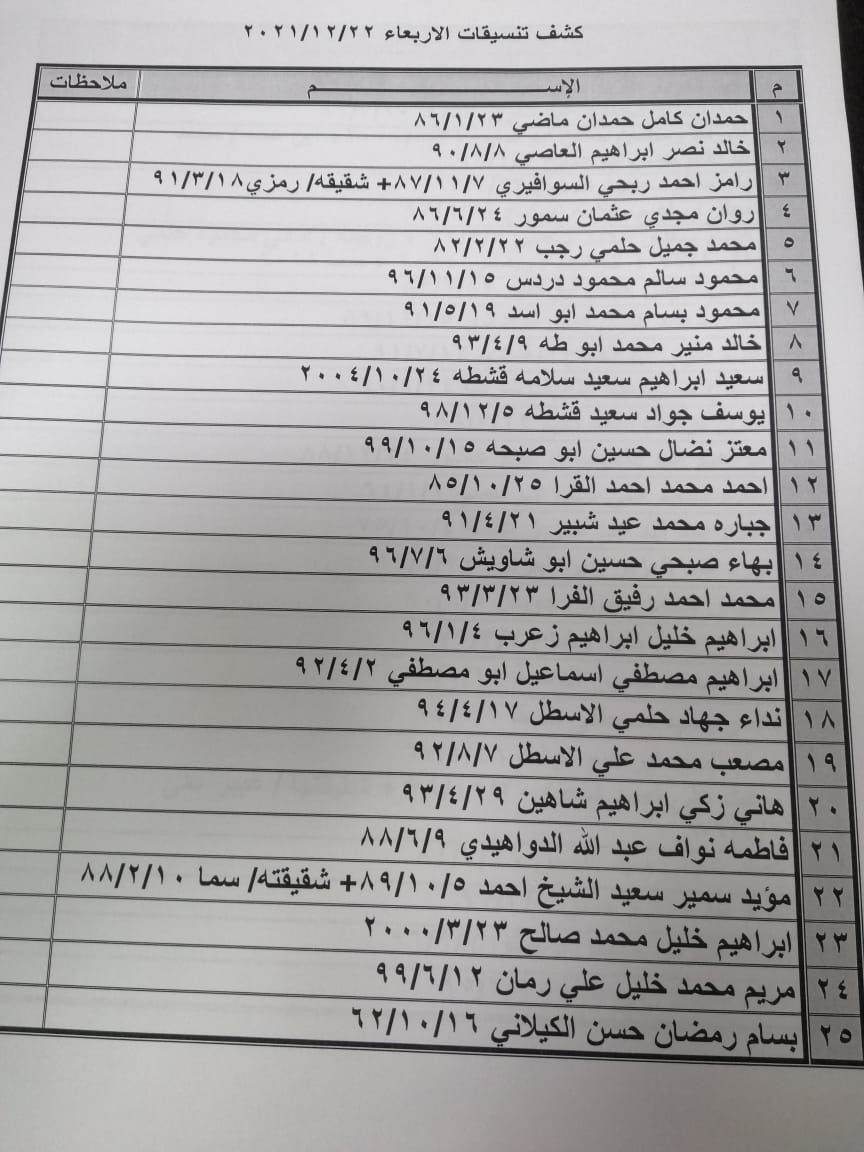 كشف تنسيقات الاربعاء ٢٠٢١/١٢/٢٢
م الإســـــم ملاحظات
١ حمدان كامل حمدان ماضي ٨٦/١/٢٣
٢ خالد نصر ابراهيم العاصي ٩٠/٨/٨
٣ رامز احمد ربحي السوافيري ٨٧/١١/٧+ شقيقه/ رمزي٩١/٣/١٨
٤ روان مجدي عثمان سمور ٨٦/٦/٢٤
٥ محمد جميل حلمي رجب ٨٢/٢/٢٢
٦ محمود سالم محمود دردس ٩٦/١١/١٥
٧ محمود بسام محمد ابو اسد ٩١/٥/١٩
٨ خالد منير محمد ابو طه ٩٣/٤/٩
٩ سعيد ابراهيم سعيد سلامه قشطه ٢٠٠٤/١٠/٢٤
١٠ يوسف جواد سعيد قشطه ٩٨/١٢/٥
١١ معتز نضال حسين ابو صبحه ٩٩/١٠/١٥
١٢ احمد محمد احمد القرا ٨٥/١٠/٢٥
١٣ جباره محمد عيد شبير ٩١/٤/٢١
١٤ بهاء صبحي حسين ابو شاويش ٩٦/٧/٦
١٥ محمد احمد رفيق الفرا ٩٣/٣/٢٣
١٦ ابراهيم خليل ابراهيم زعرب ٩٦/١/٤
١٧ ابراهيم مصطفي اسماعيل ابو مصطفي ٩٢/٤/٢
١٨ نداء جهاد حلمي الاسطل ٩٤/٤/١٧
١٩ مصعب محمد علي الاسطل ٩٢/٨/٧
٢٠ هاني زكي ابراهيم شاهين ٩٣/٤/٢٩
٢١ فاطمه نواف عبد الله الدواهيدي ٨٨/٦/٩
٢٢ مؤيد سمير سعيد الشيخ احمد ٨٩/١٠/٥+ شقيقته/ سما ٨٨/٢/١٠
٢٣ ابراهيم خليل محمد صالح ٢٠٠٠/٣/٢٣
٢٤ مريم محمد خليل علي رمان ٩٩/٦/١٢
٢٥ بسام رمضان حسن الكيلاني ٦٢/١٠/١٦